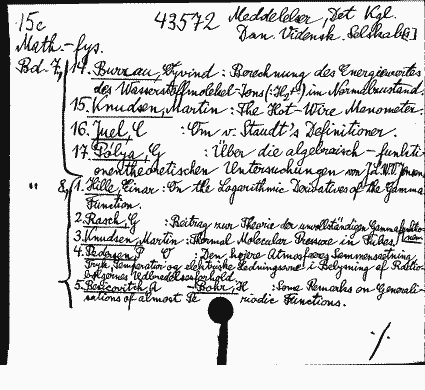 15c 43572 Meddelelser, Det Kgl.
Dan. Vidensk. Selskab[s]
Math.-fys.
Bd. 7, 14. Burrau, Øyvind : Berechnung des Energiewertes
des Wasserstoffmolekel-Ions (H₂⁺) im Normalzustand.
15. Knudsen, Martin : The Hot-Wire Manometer.
16. Juel, C : Om v. Staudt's Definitioner.
17. Pólya, G : Über die algebraisch-funkti-
onentheoretischen Untersuchungen von J.L.W.V. Jensen
" 8, 1. Hille, Einar : On the Logarithmic Derivatives of the Gamma
Function.
2. Rasch, G : Beitrag zur Theorie der unvollständigen Gammafunktio-
3. Knudsen, Martin : Normal Molecular Pressure in Tubes.
4. Pedersen, P O : Den højere Atmosfæres Sammensætning,
Tryk, Temperatur og elektriske Ledningsevne i Belysning af Radio-
bølgernes Udbredelsesforhold
5. Besicovitch, A - Bohr, H : Some Remarks on Generali-
sations of almost Periodic Functions.
./.